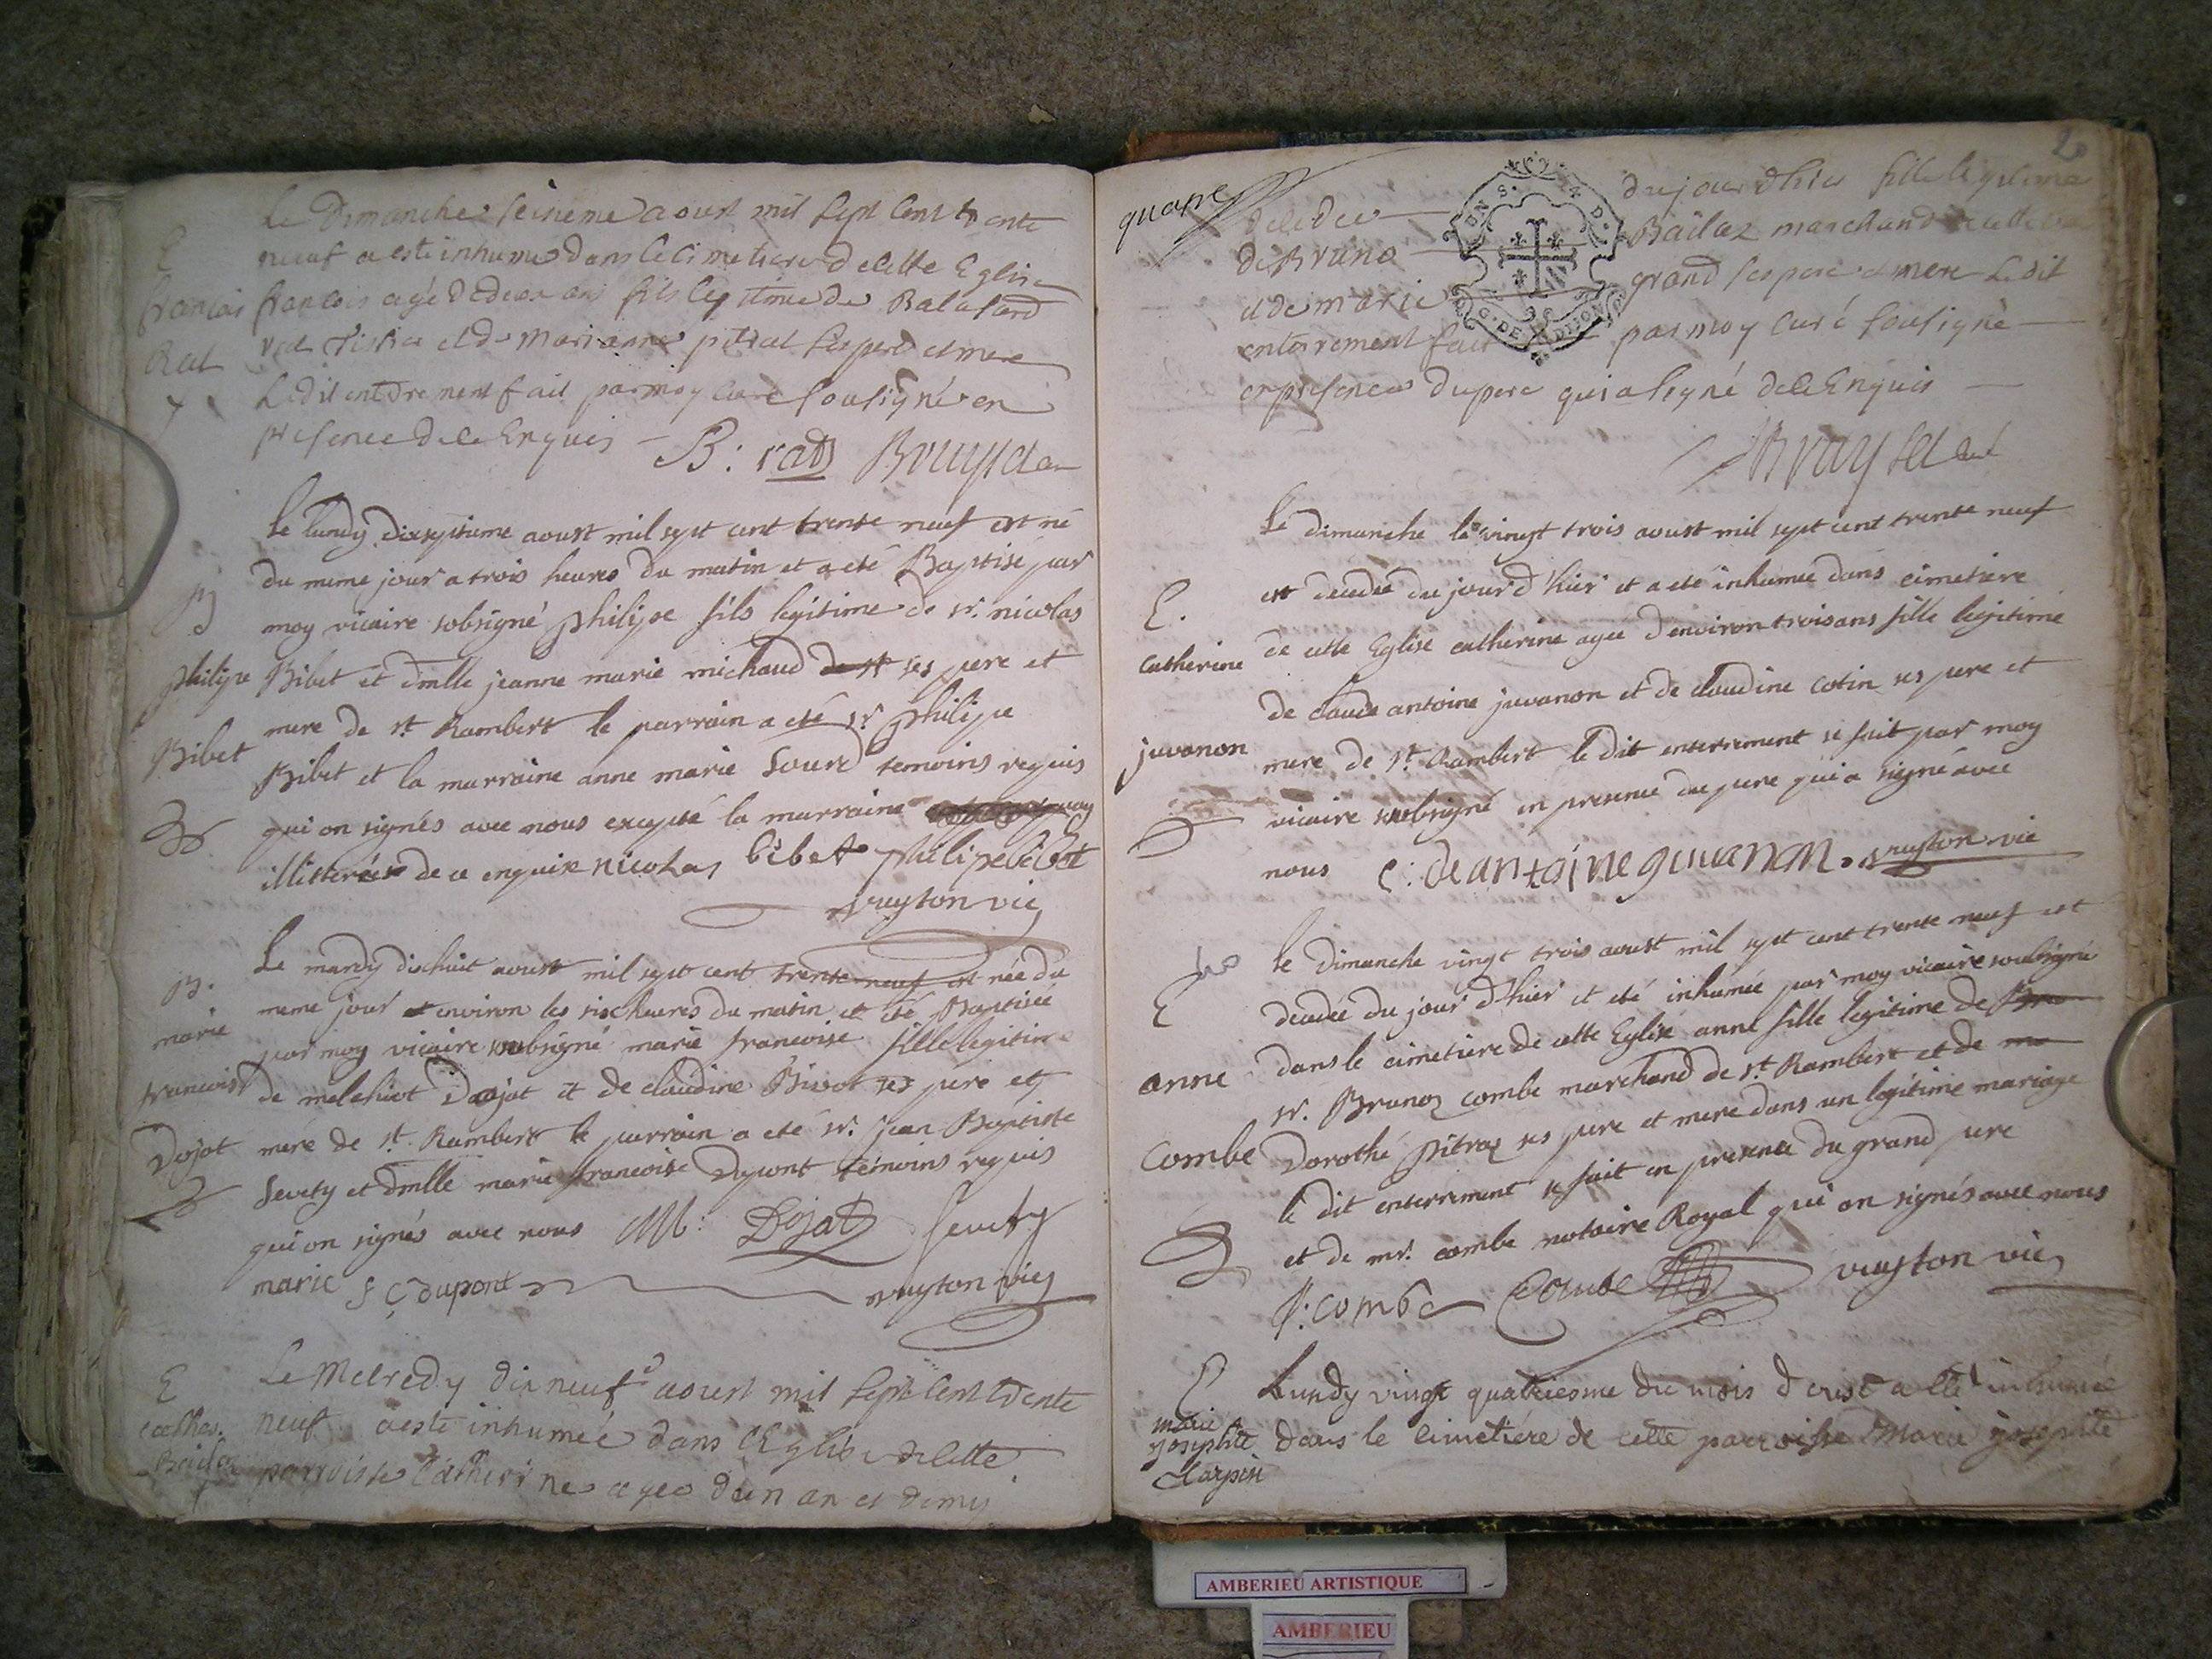 Le Dimanche seisieme aoust mil sept cent trente
neuf a esté inhumé dans le cimetiere de cette Eglise
E
francois
francois agé de deux ans fils legitime de
Rat
et de Marianne pitrat ses pere et mere
Ledit enterrement fait par moy curé sousigné en
presence de le Enquis
B: rat
Le lundy dixseptieme aoust mil sept cent trente neuf est né
du meme jour a trois heures du matin et a eté Baptisé par
B
moy vicaire sobsigné philipe fils legitime de sr. nicolas
philipe
Bibet et dmlle jeanne marie michaud ses pere et
mere de st Rambert le parrain a eté sr. philipe
Bibet
Bibet et la marraine anne marie Sourd temoins requis
qui on signés avec nous excepté la marraine
illitterée de ce enquise nicolas bibet philipe bibet
vuyton vic
Le mardy dixhuit aoust mil sept cent trente neuf est née du
B.
meme jour environ les six heures du matin et eté Baptisée
marie
par moy vicaire soubsigné marie francoise fille legitime
francoise
de melchiot Dojat et de claudine Bivot ses pere et
Dojat
mere de st. Rambert le parrain a eté sr. jean Baptiste
Sevety et dmlle marie francoise Dupont temoins requis
qui on signés avec nous M: Dojat
marie f ç dupont
vuyton vic
Le Mecredy dix neuf aoust mil sept cent trente
E
neuf a esté inhumée dans l'Eglise de cette
cathe.
parroisse Catherine agee d'un an et demis
2
quape
decedee du jour dhier fille legitime
de Bruno Bailaz marchand
et de marie grand ses pere et mere Le dit
enterrement fait par moy curé sousigné
en presence du pere qui a signé de le Enquis
G. DE DIJON
Le dimanche le vingt trois aoust mil sept cent trente neuf
est decedée du jour d'hier et a eté inhumée dans cimetiere
E.
Catherine
de cette Eglise catherine agée d'environ trois ans fille legitime
de claude antoine juvanon et de claudine cotin ses pere et
juvanon
mere de st. Rambert le dit enterrement se fait par moy
vicaire soubsigné en presence du pere qui a signé avec
nous
vuyton vic
le dimanche vingt trois aoust mil sept cent trente neuf est
E
decedée du jour d'hier et eté inhumée par moy vicaire soubsigné
anne
dans le cimetiere de cette Eglise anne fille legitime de
sr. Brunoz combe marchand de st. Rambert et de
Combe
Dorothé pitraz ses pere et mere dans un legitime mariage
le dit enterrement se fait en presence du grand pere
et de mr. combe notaire Royal qui on signés avec nous
combe Combe vuyton vic
E
Lundy vingt quatriesme du mois d'aust a eté inhumée
marie
josephte
dans le cimetiére de cette parroisse Marie josephte
Carpin
AMBERIEU ARTISTIQUE
AMBERIEU